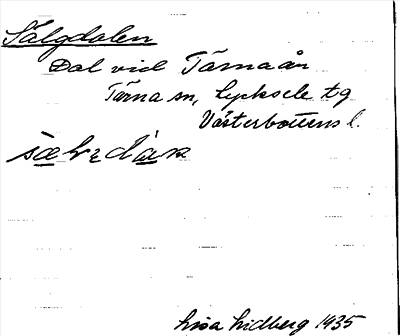 Sälgdalen
Dal vid Tärnaån
Tärna sn, Lycksele tg
Västerbottens l.
Lisa Lidberg 1935